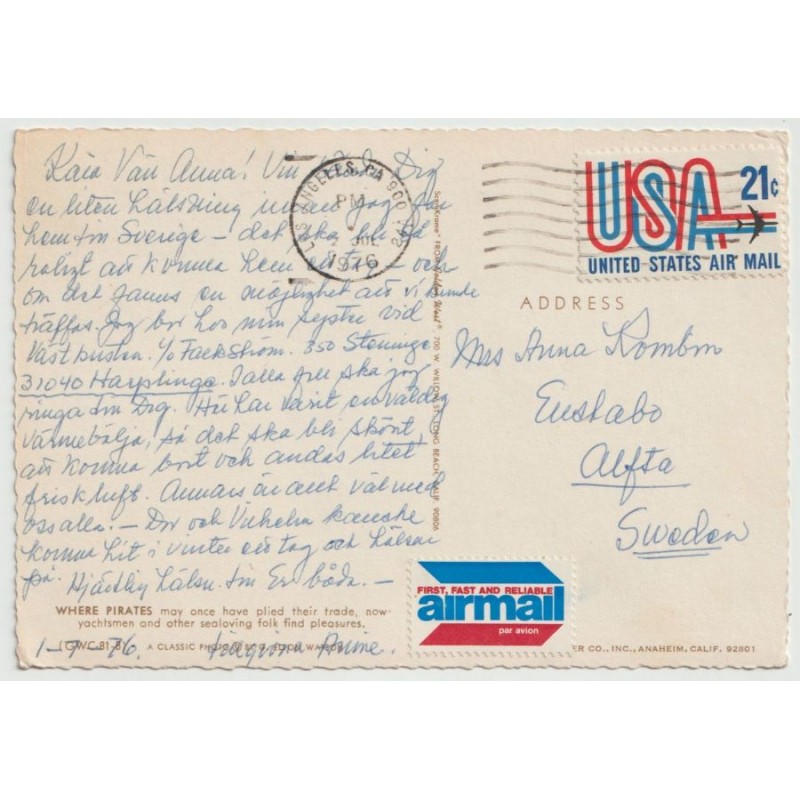 Kära Vän Anna! Vill Dig
en liten hälsning innan jag far
hem till Sverige – det ska bli så
roligt att komma hem – och
om det fanns en möjlighet att vi kunde
träffas. Jag bor hos min syster vid
Västkusten. c/o Fackström. 350 Steninge
31040 Harplinge. I alla fall ska jag
ringa till Dig. Här har varit en väldig
värmebölja, så det ska bli skönt
att komma bort och andas litet
frisk luft. Annars är allt väl med
oss alla. – Du och Vilhelm kanske
komma hit i vinter ett tag och hälsar
på. Hjärtlig hälsn. till Er båda. –
WHERE PIRATES may once have plied their trade, now
yachtsmen and other sealoving folk find pleasures.
1-7-76.
A CLASSIC
LOS ANGELES, CA 900
PM
JUL
1976
700 W. WILLOW ST., LONG BEACH, CALIF. 90806
USA 21c
UNITED STATES AIR MAIL
ADDRESS
Mrs Anna
Alfta
Sweden
FIRST, FAST AND RELIABLE
airmail
par avion
ER CO., INC., ANAHEIM, CALIF. 92801